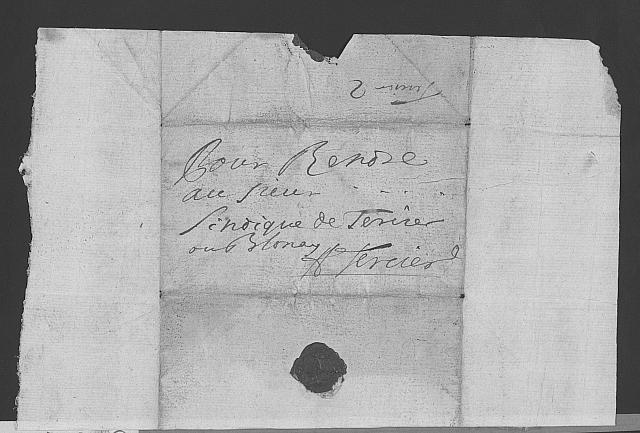 Pour Rendre
au sieur . . . . .
sindique de Tercier
ou Blonay
A Tercier